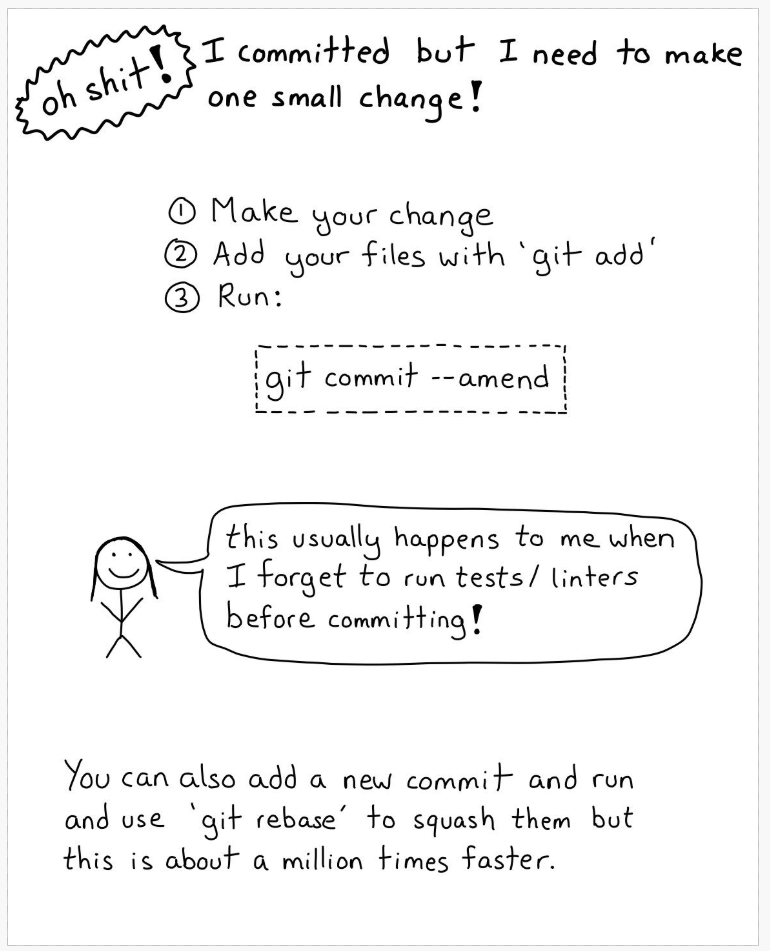 oh shit!
I committed but I need to make
one small change!
① Make your change
② Add your files with 'git add'
③ Run:
git commit --amend
this usually happens to me when
I forget to run tests/linters
before committing!
You can also add a new commit and run
and use 'git rebase' to squash them but
this is about a million times faster.